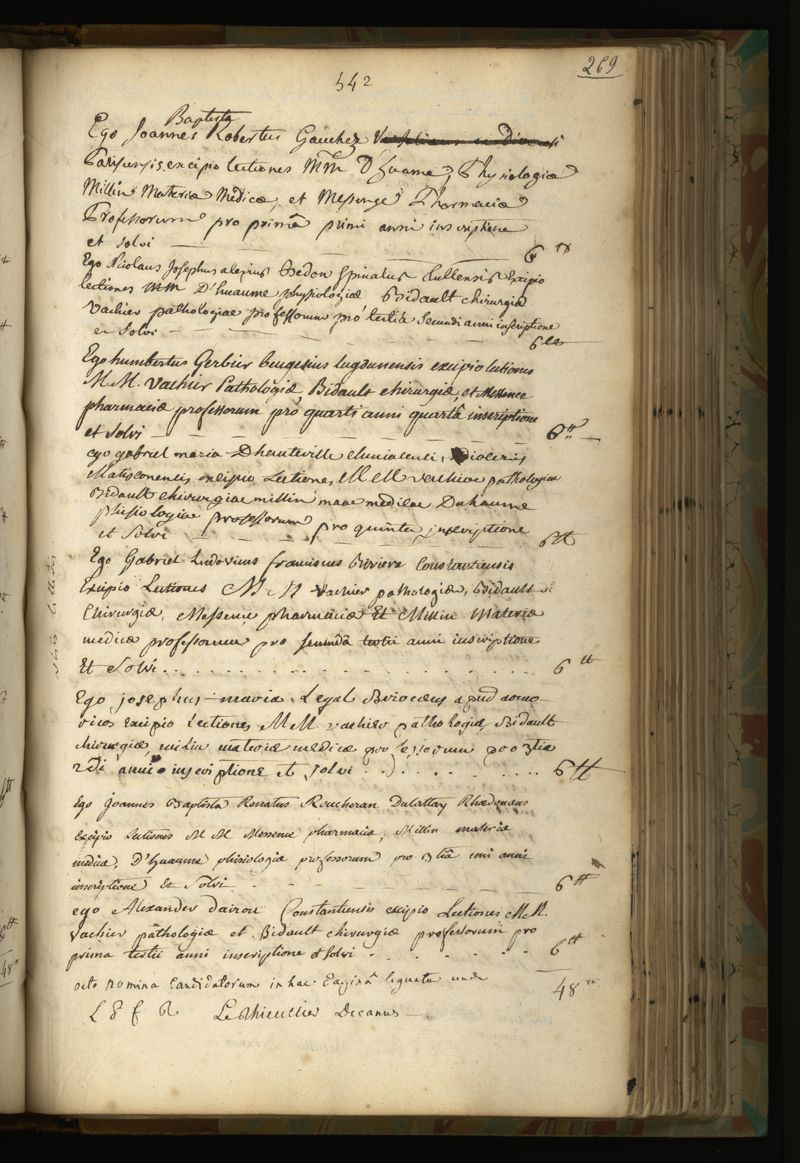 269
542
Baptista
Ego Joannes Robertus Gauchez
Parisiensis excipio lectiones MM D'huaume, Physiologiæ
Millin Materiæ Medicæ, et Messenge Pharmaciæ
Professorum pro primâ primi anni inscriptione
et solvi 6 tt
Ego Nicolaus Josephus alexius Bedon Spinalus tullensis Excipio
lectiones MM D'huaume physiologiæ Bidault chirurgiæ
Vachier pathologiae professorum pro tertiâ secundi anni inscriptione
et solvi 6 tt
Ego humbertus Gerbier beugesius lugdunensis excipio lectiones
M.M. Vachier Pathologiæ, Bidault chirurgiæ, et Messence
pharmaciæ professorum pro quarti anni quartâ inscriptione
et solvi 6 tt
ego gabriel maria Dhauteville cluniacensi, Diocesis
Matisconensis excipio Lectiones, MM vachier pathologiae
Bidault chirurgiae millin mae medicae Duhaume
phisiologiae professorum pro quinta inscriptione
et solvi 6 tt
Ego Gabriel Ludovicus franciscus Riviere Constantiensis
Excipio Lectiones MM Vachier pathologiæ, Bidault
Chirurgiæ, Messence pharmaciæ Et Millin Materiæ
medicæ professorum pro secundâ tertii anni inscriptione
Et solvi 6 tt
Ego josephus-maria Legal Briocæus apud armo
ricos Excipio Lectiones MM. vachier pathologiæ, Bidault
chirurgiæ, milin materiæ medicæ professorum pro 3tia
2di anni inscriptione et solvi 6 tt
Ego Joannes Baptista Renatus Roucheran Dulattay Rhædonæus
Excipio Lectiones MM Messence pharmaciæ, Millin materiæ
medicæ, D'huaume phisiologiæ professorum pro 3tiâ imi anni
inscriptione Et Solvi 6 tt
ego Alexander dairou Constantiensis excipio Lectiones MM.
Vachier pathologiæ et Bidault chirurgiæ professorum pro
prima tertii anni inscriptione et solvi 6 tt
octo nomina Candidatorum in hac Paginâ leguntur unde 48 tt
L T f R Le Thieullier Decanus